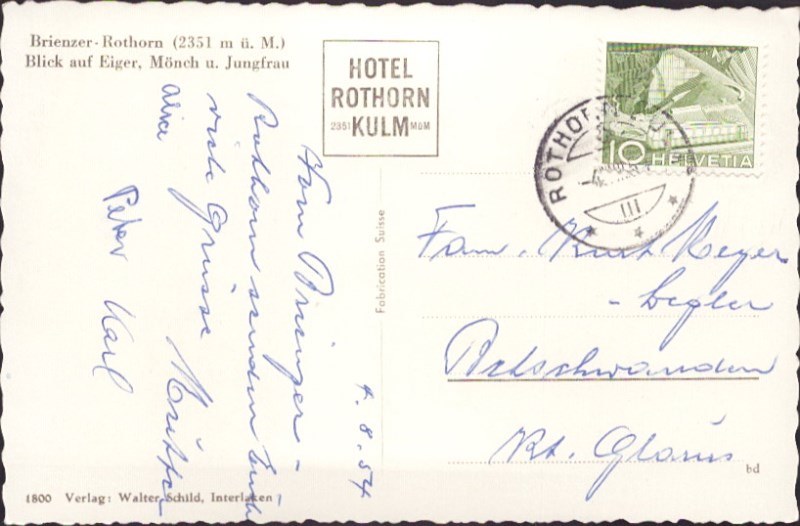 Brienzer-Rothorn (2351 m ü. M.)
Blick auf Eiger, Mönch u. Jungfrau
HOTEL
ROTHORN
2351 KULM MÜM
10 HELVETIA
ROTHOR
III
Vom Brienzer-
Rothorn senden Euch
viele Grüsse
Alice
Peter Karl
4.8.54
Fabrication Suisse
Fam. Kurt Meyer
- Legler
Betschwanden
Kt. Glarus
bd
1800 Verlag: Walter Schild, Interlaken